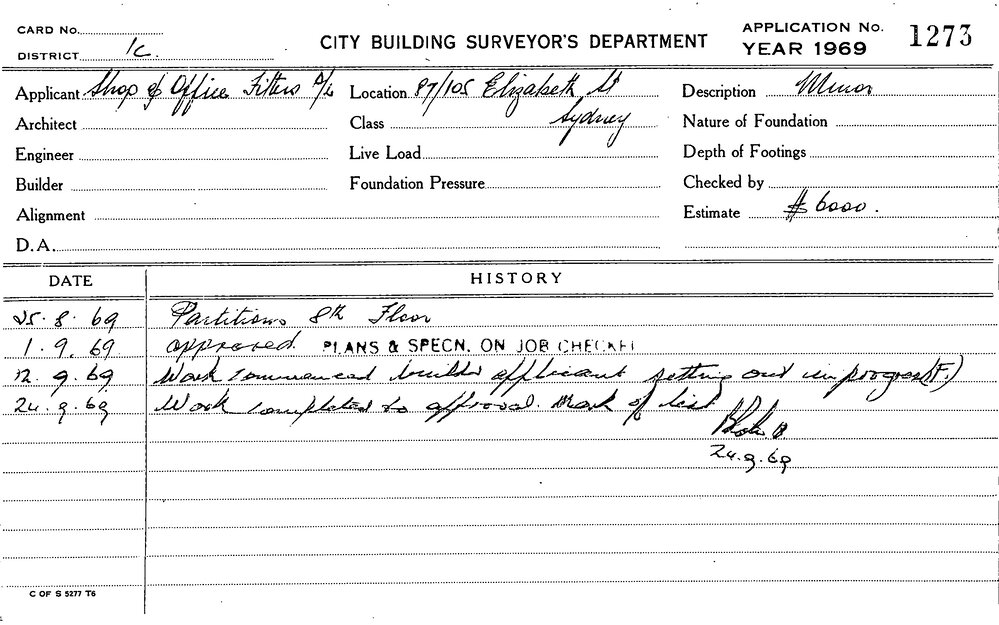 CARD No.
DISTRICT 1C.
CITY BUILDING SURVEYOR'S DEPARTMENT
APPLICATION No. 1273
YEAR 1969
Applicant Shop & Office Fitters P/L
Location 87/105 Elizabeth St
Sydney
Description Minor
Architect
Class
Nature of Foundation
Engineer
Live Load
Depth of Footings
Builder
Foundation Pressure
Checked by
Alignment
Estimate $6000.
D.A.
DATE HISTORY
25.8.69 Partitions 8th Floor
1.9.69 approved. PLANS & SPECN. ON JOB CHECKE
12.9.69 Work commenced builder applicant setting out in progress (F.)
24.9.69 Work completed to approval. Mark of list
24.9.69
C OF S 5277 T6